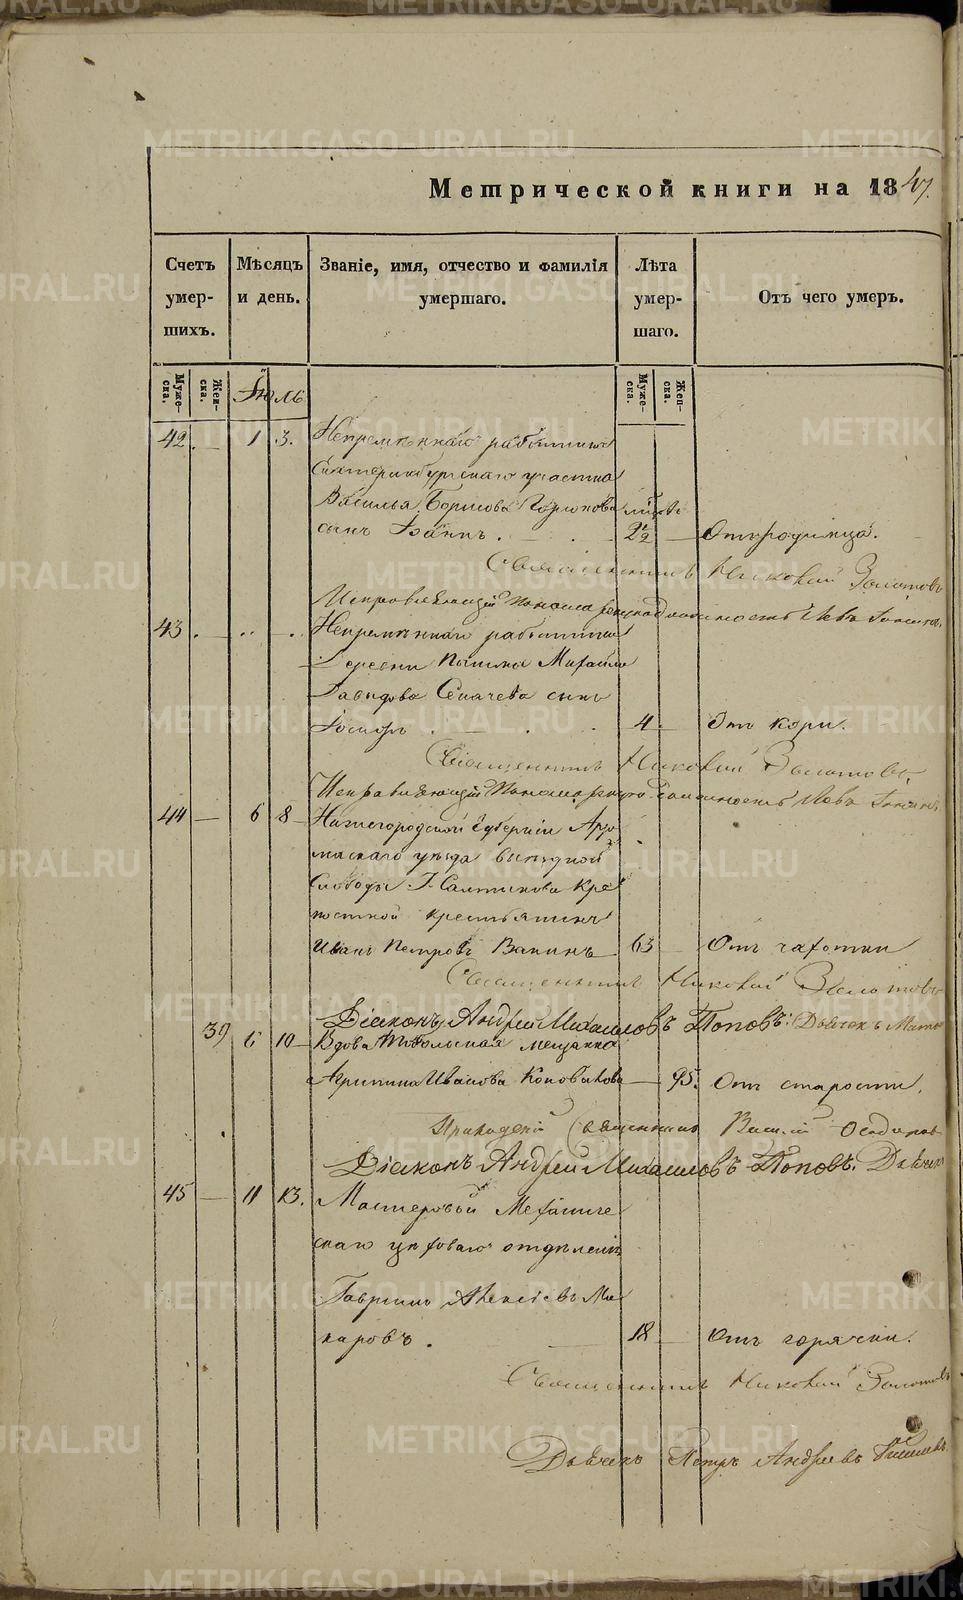 METRIKI.GASO-URAL.RU
Метрической книги на 1847.
Счетъ умер-шихъ.
Мѣсяцъ и день.
Званіе, имя, отчество и фамилія умершаго.
Лѣта умер-шаго.
Отъ чего умеръ.
Муже-ска.
Жен-ска.
Іюль
Муже-ска.
Жен-ска.
42. — 1 3. Непремѣннаго работника
Екатеринбургскаго участка
Василья Борисова Горюнова
сынъ Іоаннъ. 2½ — Отъ родимца.
Священникъ Николай Золотовъ
Исправляющій Пономарскую должность Левъ
43. — Непремѣннаго работника
Деревни Михайла
Давидова сынъ
Іосифъ 4. Отъ кори.
Священникъ Николай Золотовъ
Исправляющій Пономарскую должность Левъ
44 — 6 8 — Нижегородской Губерніи Арза
маскаго уѣзда выѣздной
Слободы Г. Салтыкова кре
постной крестьянинъ
Иванъ Петровъ Ванинъ 63 — Отъ чахотки
Священникъ Николай Золотовъ
Діаконъ Андрей Михаиловъ Поповъ. Дьячекъ
39 6 10 — Вдова Тобольская мещанка
Агрипина Иванова Коновалова — 95. Отъ старости.
Приходскій Священникъ Василій
Діаконъ Андрей Михаиловъ Поповъ. Дьячекъ
45 — 11 13. Мастеровой Механиче
скаго цеховаго отдѣленія
Гавріилъ Алексіевъ Ма
каровъ. 18 — Отъ горячки.
Священникъ Николай Золотовъ
Дьячекъ Петръ Андреевъ